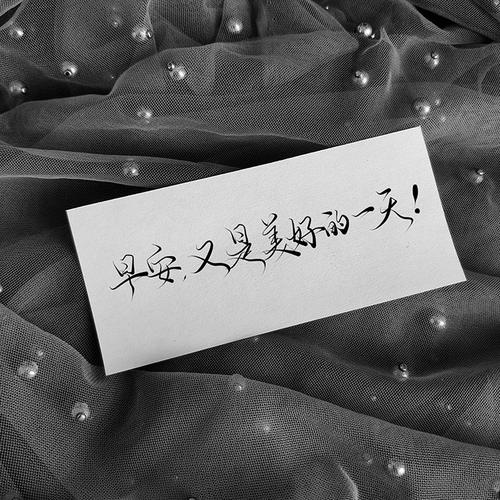 早安,又是美好的一天!